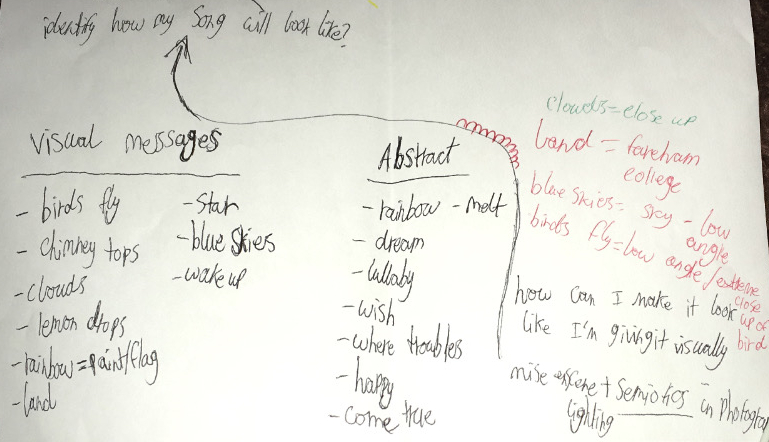 identify how my Song will look like?
visual messages
- birds fly
- chimney tops
- clouds
- lemon drops
- rainbow = paint/flag
- land
- Star
- blue skies
- wake up
Abstract
- rainbow - melt
- dream
- lullaby
- wish
- where troubles
- happy
- come true
clouds = close up
land = fareham
college
blue skies = sky - low
angle
birds fly = low angle / extreme
close
up of
bird
how can I make it look
like I'm giving it visually
mise escene + Semiotics in Photogra
lighting